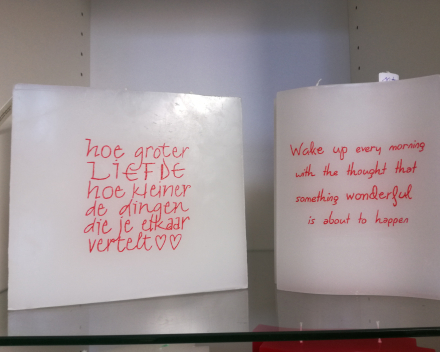 hoe groter
LIEFDE
hoe kleiner
de dingen
die je elkaar
vertelt♡♡
Wake up every morning
with the thought that
something wonderful
is about to happen